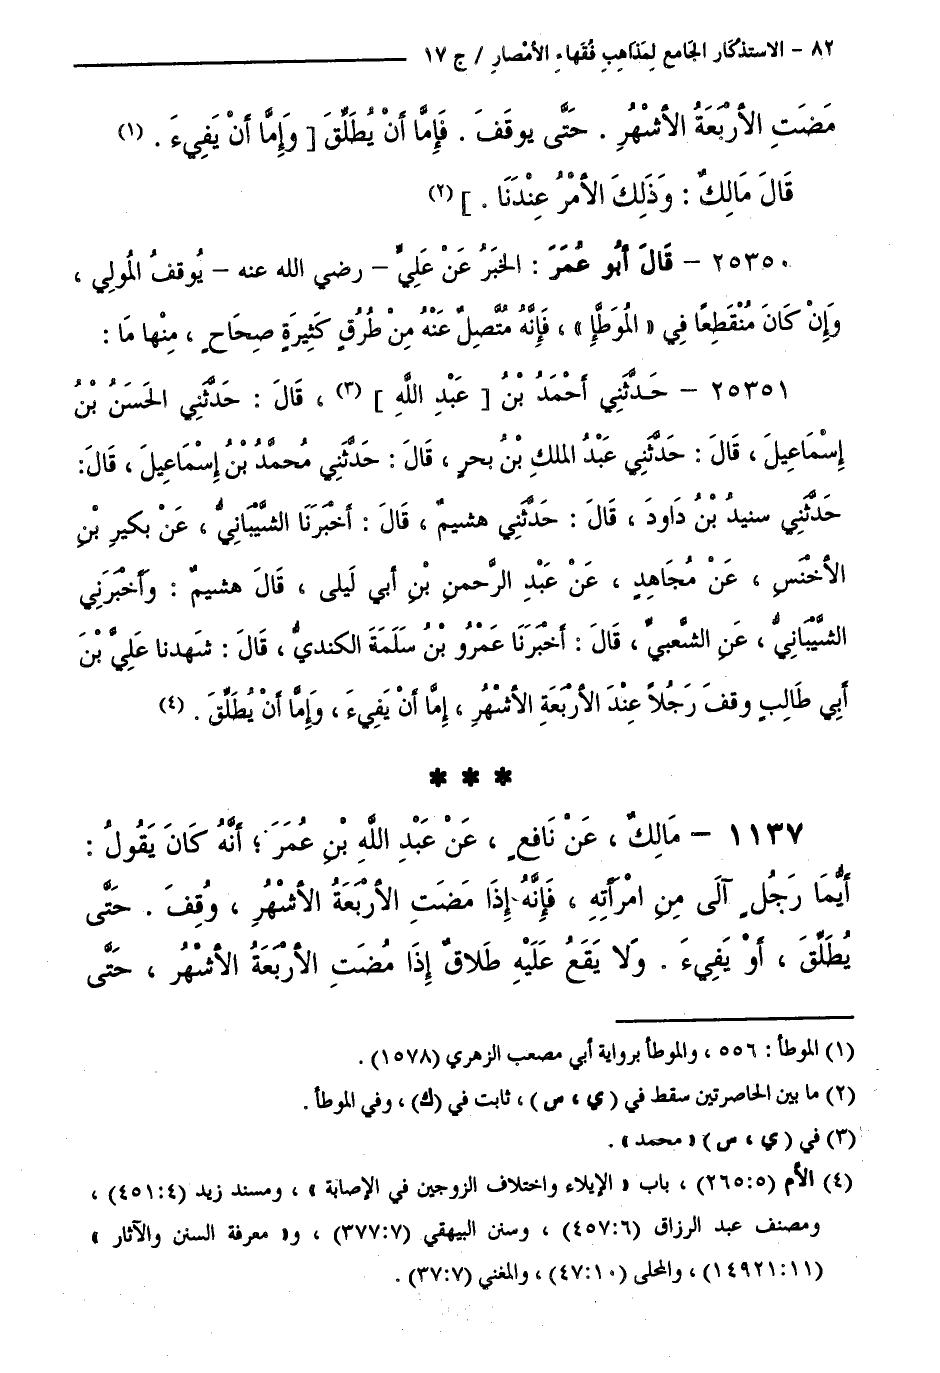 ٨٢ – الاستذكار الجَامع لِمَذاهِبِ فُقَهاءِ الأمْصارِ / ج ١٧
مَضَتِ الأرْبَعَةُ الأشْهُرِ . حَتَّى يوقفَ . فَإِمَّا أَنْ يُطَلِّقَ [ وَإِمَّا أَنْ يَفِيءَ . (١)
قَالَ مَالِكٌ : وَذَلِكَ الأمْرُ عِنْدَنَا . ] (٢)
٢٥٣٥٠ – قَالَ أَبُو عُمَرَ : الخبَرُ عَنْ عَلِيٍّ – رضي الله عنه – يُوقفُ المُولِي ،
وَإِنْ كَانَ مُنْقَطِعًا فِي « المُوَطَّإِ » ، فَإِنَّهُ مُتَّصِلٌ عَنْهُ مِنْ طُرُقٍ كَثِيرَةٍ صِحَاحٍ ، مِنْها مَا :
٢٥٣٥١ – حَدَّثَنِي أَحْمَدُ بْنُ [ عَبْدِ اللَّهِ ] (٣) ، قَالَ : حَدَّثَنِي الحَسَنُ بْنُ
إِسْمَاعِيلَ ، قَالَ : حَدَّثَنِي عَبْدُ الملكِ بْنُ بحرٍ ، قَالَ : حَدَّثَنِي مُحمَّدُ بْنُ إِسْمَاعِيلَ ، قَالَ:
حَدَّثَنِي سنيدُ بْنُ دَاودَ ، قَالَ : حَدَّثَنِي هشيمٌ ، قَالَ : أَخْبَرَنَا الشَّيْبَانِيُّ ، عَنْ بكيرِ بْنِ
الأخْنَسِ ، عَنْ مُجَاهِدٍ ، عَنْ عَبْدِ الرَّحمنِ بْنِ أبي لَيلى ، قَالَ هشيمٌ : وَأَخْبَرَنِي
الشَّيْبَانِيُّ ، عَنِ الشَّعبيِّ ، قَالَ : أَخْبَرَنَا عَمْرُو بْنُ سَلَمَةَ الكنديُّ ، قَالَ : شهَدنا عَلِيَّ بْنَ
أَبِي طَالِبٍ وقفَ رَجُلاً عِنْدَ الأرْبَعَةِ الأشْهُرِ ، إِمَّا أَنْ يَفِيءَ ، وَإِمَّا أَنْ يُطَلِّقَ . (٤)
* * *
١١٣٧ – مَالِكٌ ، عَنْ نَافِعٍ ، عَنْ عَبْدِ اللَّهِ بْنِ عُمَرَ ؛ أَنَّهُ كَانَ يَقُولُ :
أَيُّمَا رَجُلٍ آلَى مِنِ امْرَأَتِهِ ، فَإِنَّهُ إِذَا مَضَتِ الأرْبَعَةُ الأشْهُرِ ، وُقِفَ . حَتَّى
يُطَلِّقَ ، أَوْ يَفِيءَ . وَلا يَقَعُ عَلَيْهِ طَلاقٌ إِذَا مُضَتِ الأرْبَعَةُ الأشْهُرِ ، حَتَّى
(١) الموطأ : ٥٥٦ ، والموطأ برواية أبي مصعب الزهري (١٥٧٨) .
(٢) ما بين الحاصرتين سقط في ( ي ، س ) ، ثابت في (ك) ، وفي الموطأ .
(٣) في ( ي ، س ) « محمد » .
(٤) الأم (٥:‏٢٦٥) ، باب « الإيلاء واختلاف الزوجين في الإصابة » ، ومسند زيد (٤:‏٤٥١) ،
ومصنف عبد الرزاق (٦:‏٤٥٧) ، وسنن البيهقي (٧:‏٣٧٧) ، و« معرفة السنن والآثار »
(١١:‏١٤٩٢١) ، والمحلى (١٠:‏٤٧) ، والمغني (٧:‏٣٧) .